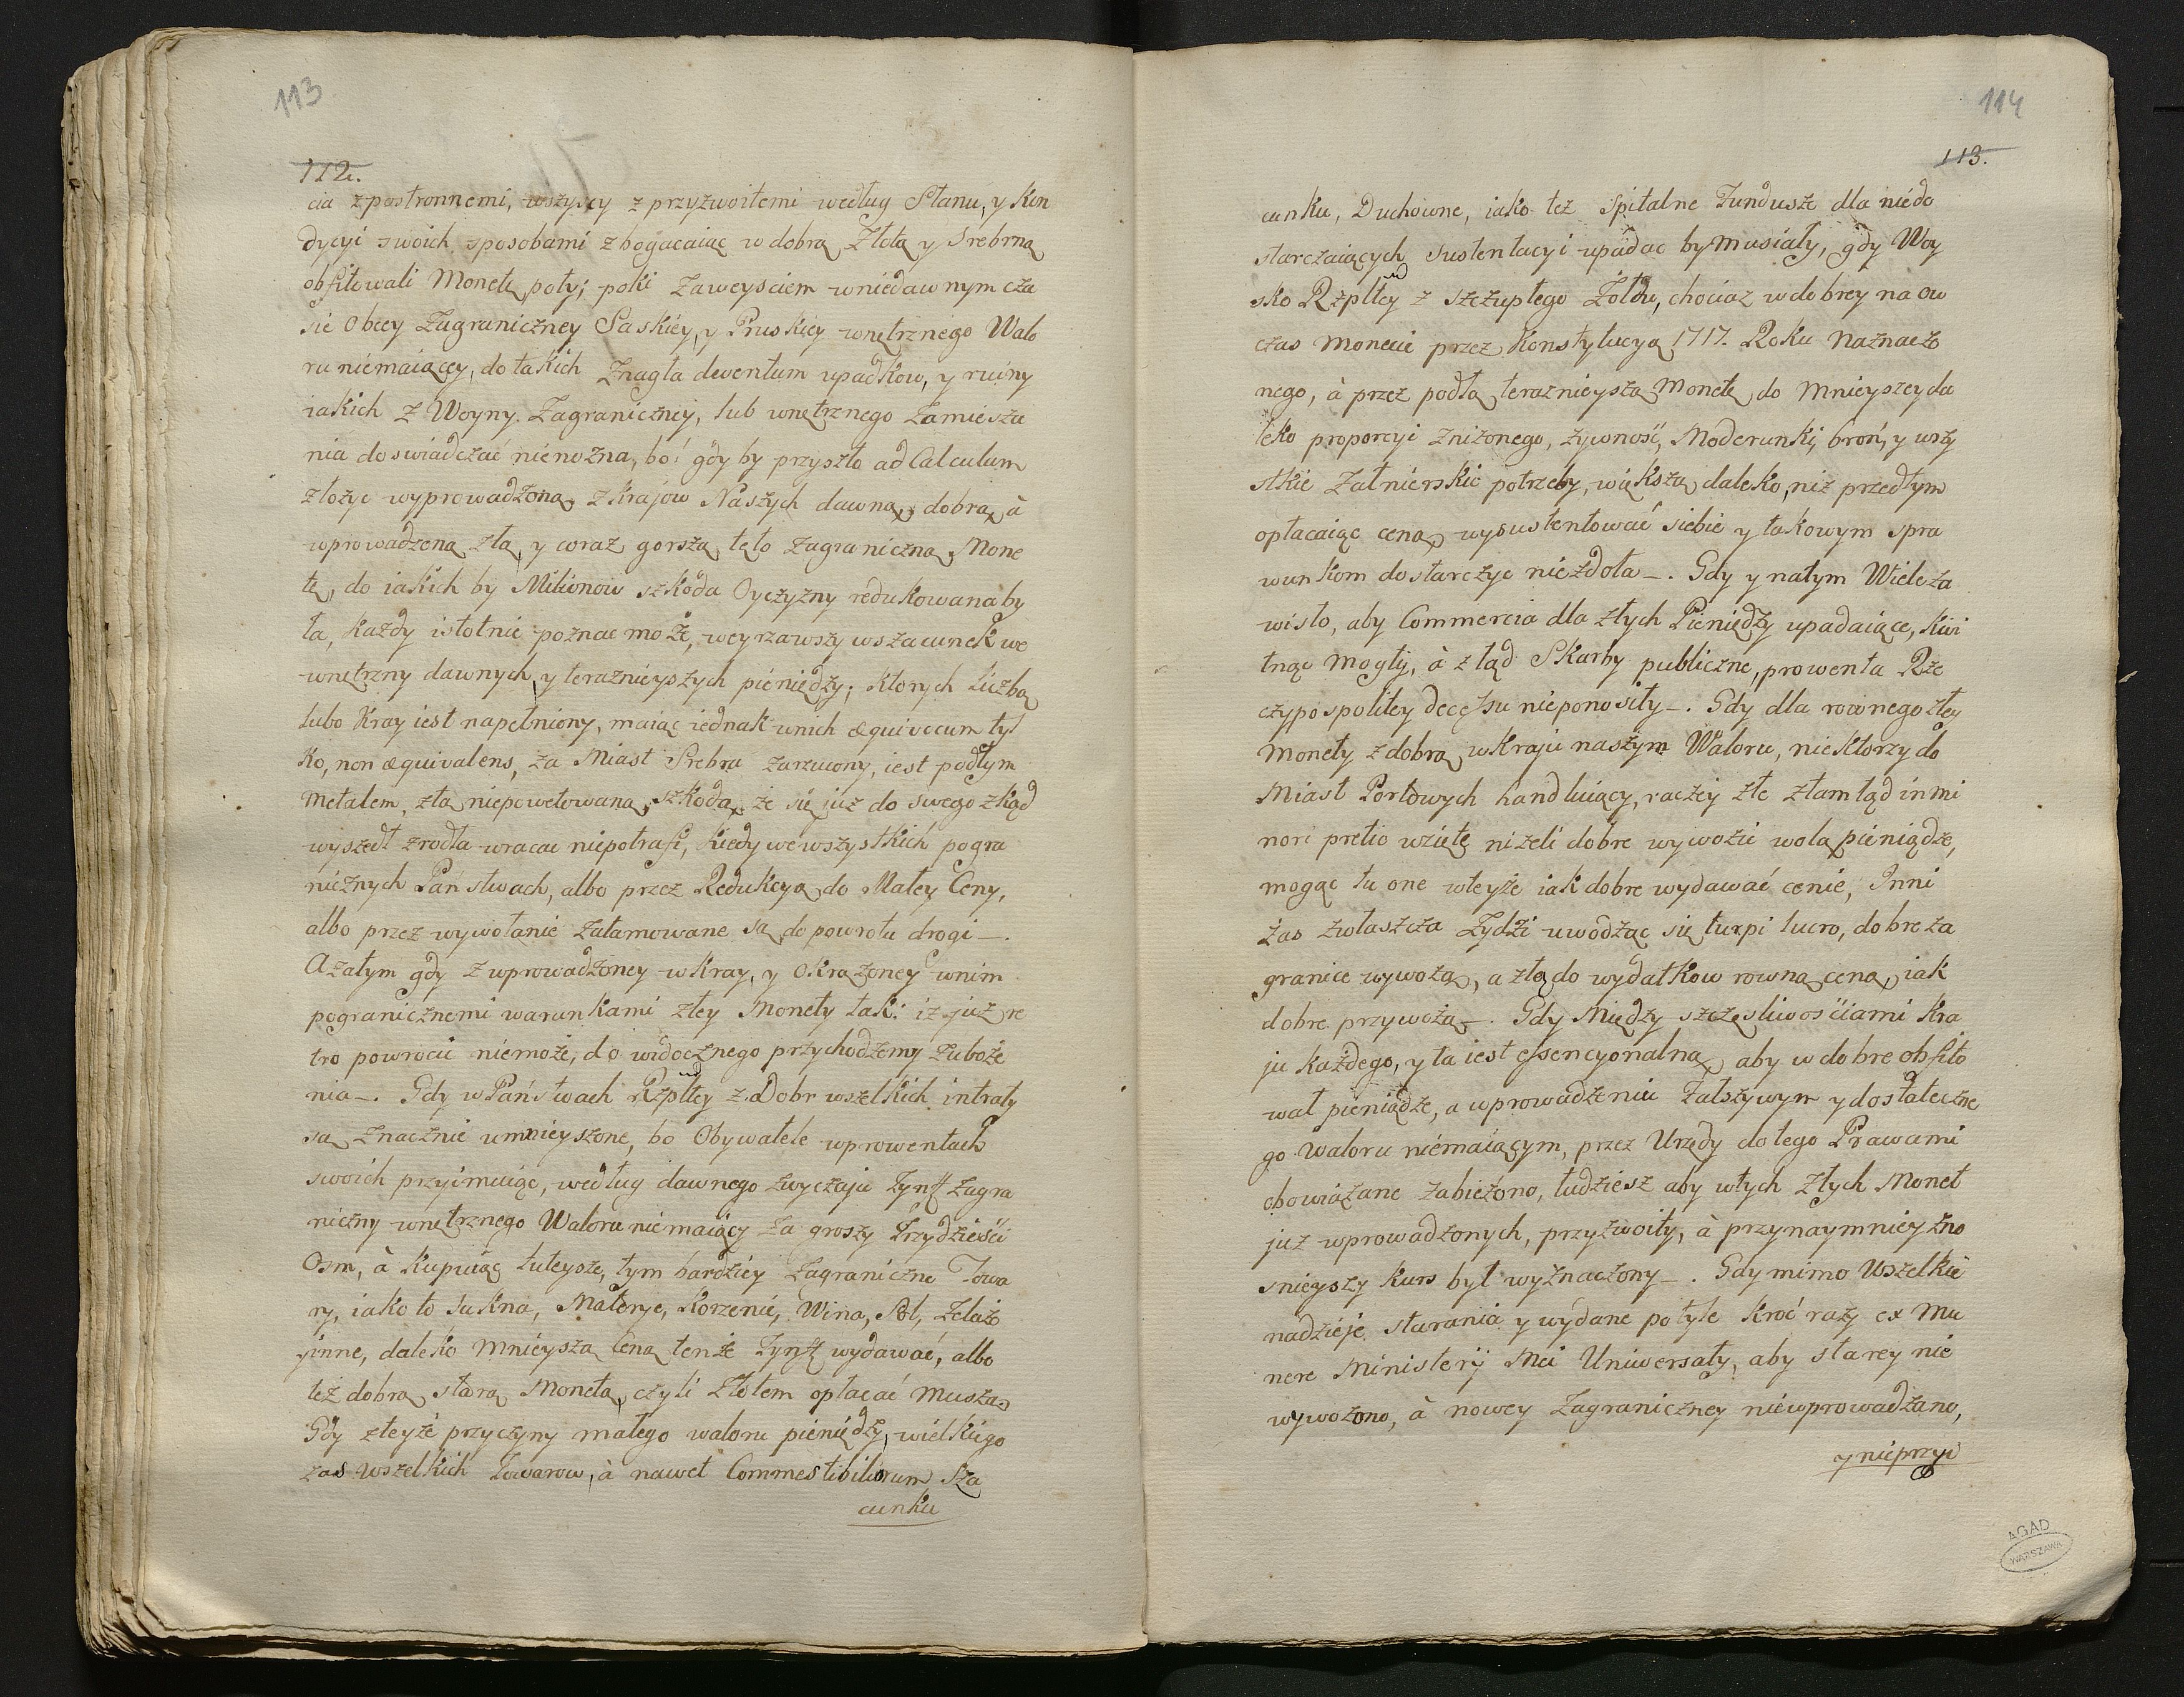 113
112.
cia zpostronnemi, wszyscy z przyzwoitemi według Stanu, y Kon
dycyi swoich sposobami zbogacaiąc w dobrą Złotą y Srebrną
obfitowali Monetę poty; poki Zaweysciem wniedawnym cza
sie Obcey Zagraniczney Saskiey, y Pruskiey wnętrznego Walo
ru niemaiącey, do takich Znagła deventum upadkow, y ruiny
iakich z Woyny Zagraniczney, lub wnętrznego Zamiesza
nia doswiadczać niemożna, bo: gdy by przyszło ad Calculum
złożyc wyprowadzoną z krajow Naszych dawną, dobrą, à
wprowadzoną złą, y coraz gorszą tęto Zagraniczną Mone
tę, do iakich by Milionow szkoda Oyczyzny redukowana by
ła, Każdy istotnie poznac może, weyrzawszy wszacunek we
wnętrzny dawnych, y teraznieyszych pieniędzy; Ktorych Liczbą
lubo Kray iest napełniony, maiąc iednak wnich æquivocum tyl
ko, non æquivalens, za Miast Srebra zarzucony, iest podłym
metalem, ztą niepowetowaną szkodą, że się już do swego zkąd
wyszedł zrodła wracac niepotrafi, Kiedy wewszystkich pogra
nicznych Państwach, albo przez Redukcyą do Małey Ceny,
albo przez wywołanie zatamowane są do powrotu drogi —.
Azatym gdy z wprowadzoney w Kray, y Okrążoney wnim
pogranicznemi warunkami złey Monety tak: iż już re
tro powrocic niemoże, do widocznego przychodzemy Zuboże
nia —. Gdy w Państwach Rzpltey z Dobr wszelkich intraty
są Znacznie umnieyszone, bo Obywatele wprowentach
swoich przyimuiąc, według dawnego Zwyczaju Tynff Zagra
niczny wnętrznego Waloru niemaiący za groszy Trzydzieści
Osm, à Kupuiąc tuteysze, tym bardziey Zagraniczne Towa
ry, iako to Sukna, Materye, Korzenie, Wina, Sol, Żelazo
yinne, daleko mnieyszą Ceną tenże Tynff wydawać, albo
też dobrą starą Monetą, czyli Złotem opłacać muszą.
Gdy zteyże przyczyny małego waloru pieniędzy, wielkiego
zas wszelkich Towarow, à nawet Commestibilium Sza
cunku
114
113.
cunku, Duchowne, iako też Spitalne Fundusze dla niedo
starczaiących Sustentacyi upadac by musiały, gdy Woy
sko Rzpltey z szczupłego Żołdu, chociaż wdobrey na ow
czas monecie przez Konstytucyą 1717. Roku Naznaczo
nego, à przez podłą teraznieyszą Monetę do Mnieyszey da
leko proporcyi Zniżonego, żywność, Moderunki, broń, y wszy
stkie Zołnierskie potrzeby, większą daleko, niż przedtym
opłacaiąc ceną, wysustentować siebie y takowym spra
wunkom dostarczyc niezdoła —. Gdy y natym Wiele za
wisło, aby Commercia dla złych Pieniędzy upadaiące, Kwi
tnąc mogły, à ztąd Skarby publiczne, prowenta Rze
czypospolitey decessu nieponosiły —. Gdy dla rownego złey
monety z dobrą, w Kraju naszym Waloru, niektorzy do
Miast Portowych handluiący, raczey złe ztamtąd in mi
nori pretio wzięte niżeli dobre wywozic wolą pieniądze,
mogąc tu one wteyże iak dobre wydawać cenie, Inni
zas zwłaszcza Zydzi uwodząc się turpi lucro, dobre za
granice wywożą, a złą do wydatkow rowną ceną, iak
dobre przywożą —. Gdy Między szczęsliwościami Kra
ju każdego, y ta iest essencyonalna, aby w dobre obfito
wał pieniądze, a wprowadzeniu fałszywym y dostateczne
go waloru niemaiącym, przez Urzędy do tego Prawami
obowiązane zabieżono, tudziesz aby wtych złych Monet
już wprowadzonych, przyzwoity, à przynaymniey zno
snieyszy Kurs był wyznaczony —. Gdy mimo Wszelkie
nadzieje starania y wydane potyle kroć razy ex Mu
nere Ministerij Mei Uniwersały, aby starey nie
wywożono, à nowey Zagraniczney niewprowadzano,
y nieprzyi
AGAD
WARSZAWA